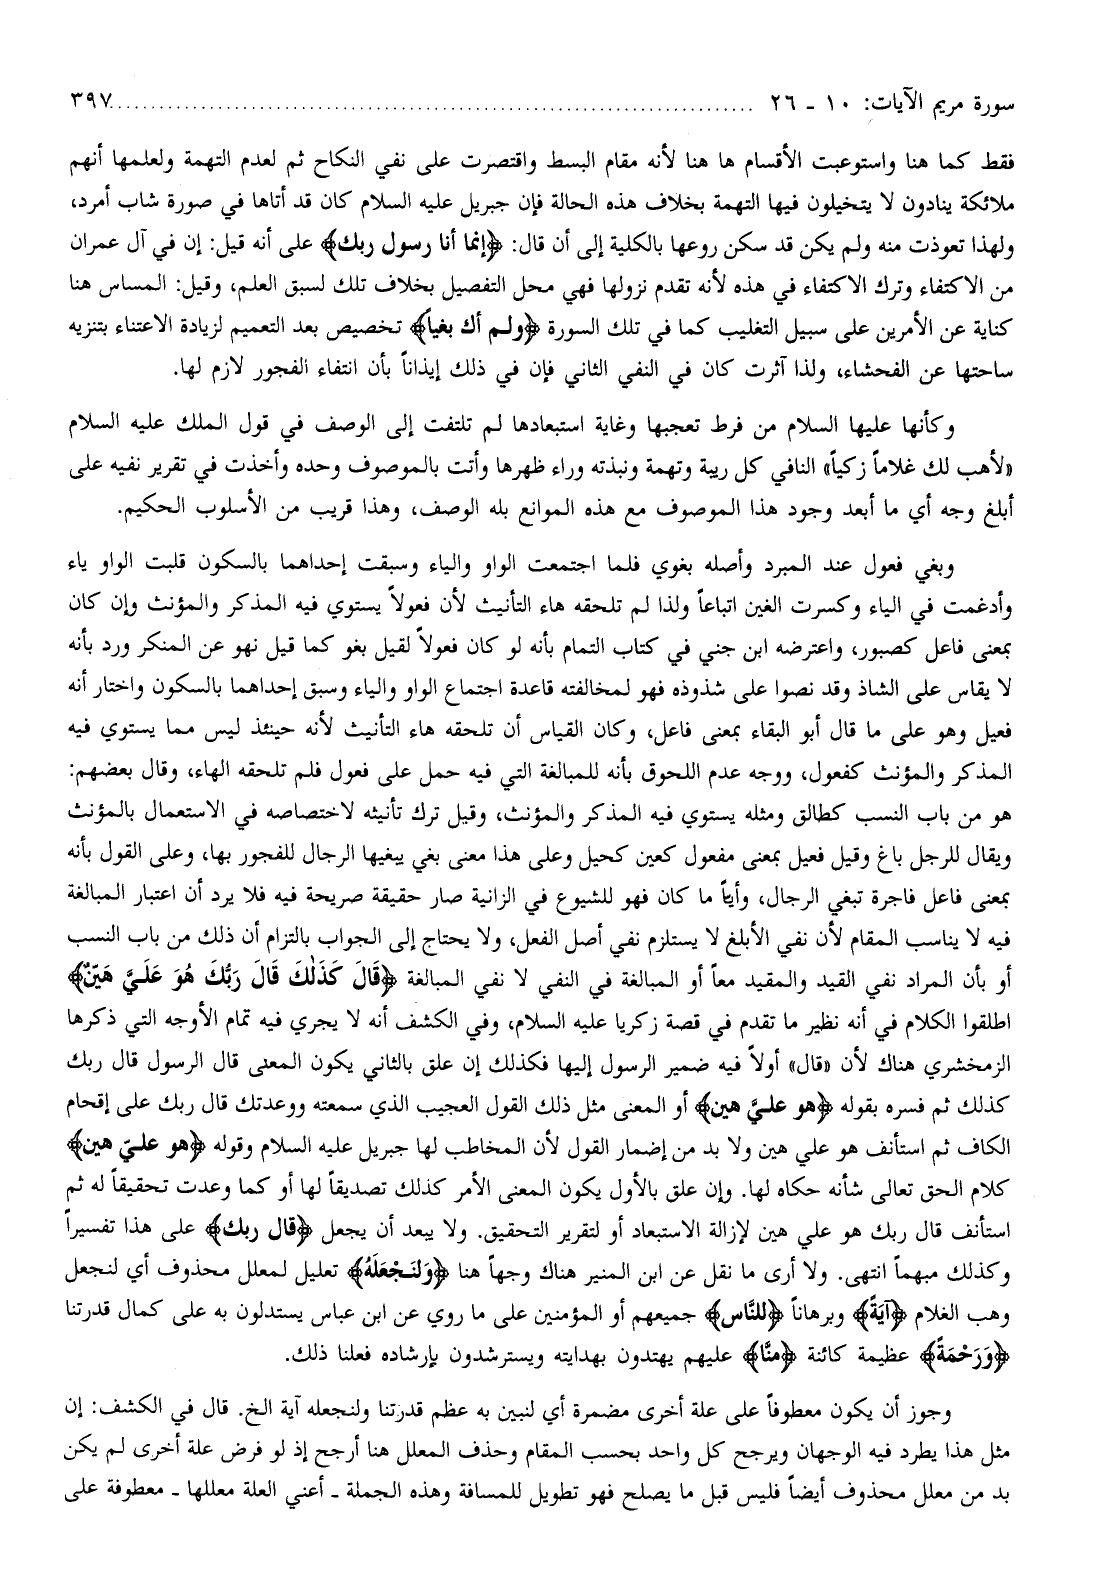 سورة مريم الآيات: ١٠ ـ ٢٦ ........................................................................... ٣٩٧
فقط كما هنا واستوعبت الأقسام ها هنا لأنه مقام البسط واقتصرت على نفي النكاح ثم لعدم التهمة ولعلمها أنهم
ملائكة ينادون لا يتخيلون فيها التهمة بخلاف هذه الحالة فإن جبريل عليه السلام كان قد أتاها في صورة شاب أمرد،
ولهذا تعوذت منه ولم يكن قد سكن روعها بالكلية إلى أن قال: ﴿إنما أنا رسول ربك﴾ على أنه قيل: إن في آل عمران
من الاكتفاء وترك الاكتفاء في هذه لأنه تقدم نزولها فهي محل التفصيل بخلاف تلك لسبق العلم، وقيل: المساس هنا
كناية عن الأمرين على سبيل التغليب كما في تلك السورة ﴿ولم أك بغياً﴾ تخصيص بعد التعميم لزيادة الاعتناء بتنزيه
ساحتها عن الفحشاء، ولذا آثرت كان في النفي الثاني فإن في ذلك إيذاناً بأن انتفاء الفجور لازم لها.
وكأنها عليها السلام من فرط تعجبها وغاية استبعادها لم تلتفت إلى الوصف في قول الملك عليه السلام
«لأهب لك غلاماً زكياً» النافي كل ريبة وتهمة ونبذته وراء ظهرها وأتت بالموصوف وحده وأخذت في تقرير نفيه على
أبلغ وجه أي ما أبعد وجود هذا الموصوف مع هذه الموانع بله الوصف، وهذا قريب من الأسلوب الحكيم.
وبغي فعول عند المبرد وأصله بغوي فلما اجتمعت الواو والياء وسبقت إحداهما بالسكون قلبت الواو ياء
وأدغمت في الياء وكسرت الغين اتباعاً ولذا لم تلحقه هاء التأنيث لأن فعولاً يستوي فيه المذكر والمؤنث وإن كان
بمعنى فاعل كصبور، واعترضه ابن جني في كتاب التمام بأنه لو كان فعولاً لقيل بغو كما قيل نهو عن المنكر ورد بأنه
لا يقاس على الشاذ وقد نصوا على شذوذه فهو لمخالفته قاعدة اجتماع الواو والياء وسبق إحداهما بالسكون واختار أنه
فعيل وهو على ما قال أبو البقاء بمعنى فاعل، وكان القياس أن تلحقه هاء التأنيث لأنه حينئذ ليس مما يستوي فيه
المذكر والمؤنث كفعول، ووجه عدم اللحوق بأنه للمبالغة التي فيه حمل على فعول فلم تلحقه الهاء، وقال بعضهم:
هو من باب النسب كطالق ومثله يستوي فيه المذكر والمؤنث، وقيل ترك تأنيثه لاختصاصه في الاستعمال بالمؤنث
ويقال للرجل باغ وقيل فعيل بمعنى مفعول كعين كحيل وعلى هذا معنى بغي يبغيها الرجال للفجور بها، وعلى القول بأنه
بمعنى فاعل فاجرة تبغي الرجال، وأيّاً ما كان فهو للشيوع في الزانية صار حقيقة صريحة فيه فلا يرد أن اعتبار المبالغة
فيه لا يناسب المقام لأن نفي الأبلغ لا يستلزم نفي أصل الفعل، ولا يحتاج إلى الجواب بالتزام أن ذلك من باب النسب
أو بأن المراد نفي القيد والمقيد معاً أو المبالغة في النفي لا نفي المبالغة ﴿قَالَ كَذَلكَ قَالَ رَبُّكَ هُوَ عَلَيَّ هَيِّنٌ﴾
اطلقوا الكلام في أنه نظير ما تقدم في قصة زكريا عليه السلام، وفي الكشف أنه لا يجري فيه تمام الأوجه التي ذكرها
الزمخشري هناك لأن «قال» أولاً فيه ضمير الرسول إليها فكذلك إن علق بالثاني يكون المعنى قال الرسول قال ربك
كذلك ثم فسره بقوله ﴿هو عليَّ هين﴾ أو المعنى مثل ذلك القول العجيب الذي سمعته ووعدتك قال ربك على إقحام
الكاف ثم استأنف هو علي هين ولا بد من إضمار القول لأن المخاطب لها جبريل عليه السلام وقوله ﴿هو عليّ هين﴾
كلام الحق تعالى شأنه حكاه لها. وإن علق بالأول يكون المعنى الأمر كذلك تصديقاً لها أو كما وعدت تحقيقاً له ثم
استأنف قال ربك هو علي هين لإزالة الاستبعاد أو لتقرير التحقيق. ولا يبعد أن يجعل ﴿قال ربك﴾ على هذا تفسيراً
وكذلك مبهماً انتهى. ولا أرى ما نقل عن ابن المنير هناك وجهاً هنا ﴿وَلنَجْعَلَهُ﴾ تعليل لمعلل محذوف أي لنجعل
وهب الغلام ﴿آيَةً﴾ وبرهاناً ﴿للنَّاس﴾ جميعهم أو المؤمنين على ما روي عن ابن عباس يستدلون به على كمال قدرتنا
﴿وَرَحْمَةً﴾ عظيمة كائنة ﴿منَّا﴾ عليهم يهتدون بهدايته ويسترشدون بإرشاده فعلنا ذلك.
وجوز أن يكون معطوفاً على علة أخرى مضمرة أي لنبين به عظم قدرتنا ولنجعله آية الخ. قال في الكشف: إن
مثل هذا يطرد فيه الوجهان ويرجح كل واحد بحسب المقام وحذف المعلل هنا أرجح إذ لو فرض علة أخرى لم يكن
بد من معلل محذوف أيضاً فليس قبل ما يصلح فهو تطويل للمسافة وهذه الجملة ـ أعني العلة معللها ـ معطوفة على